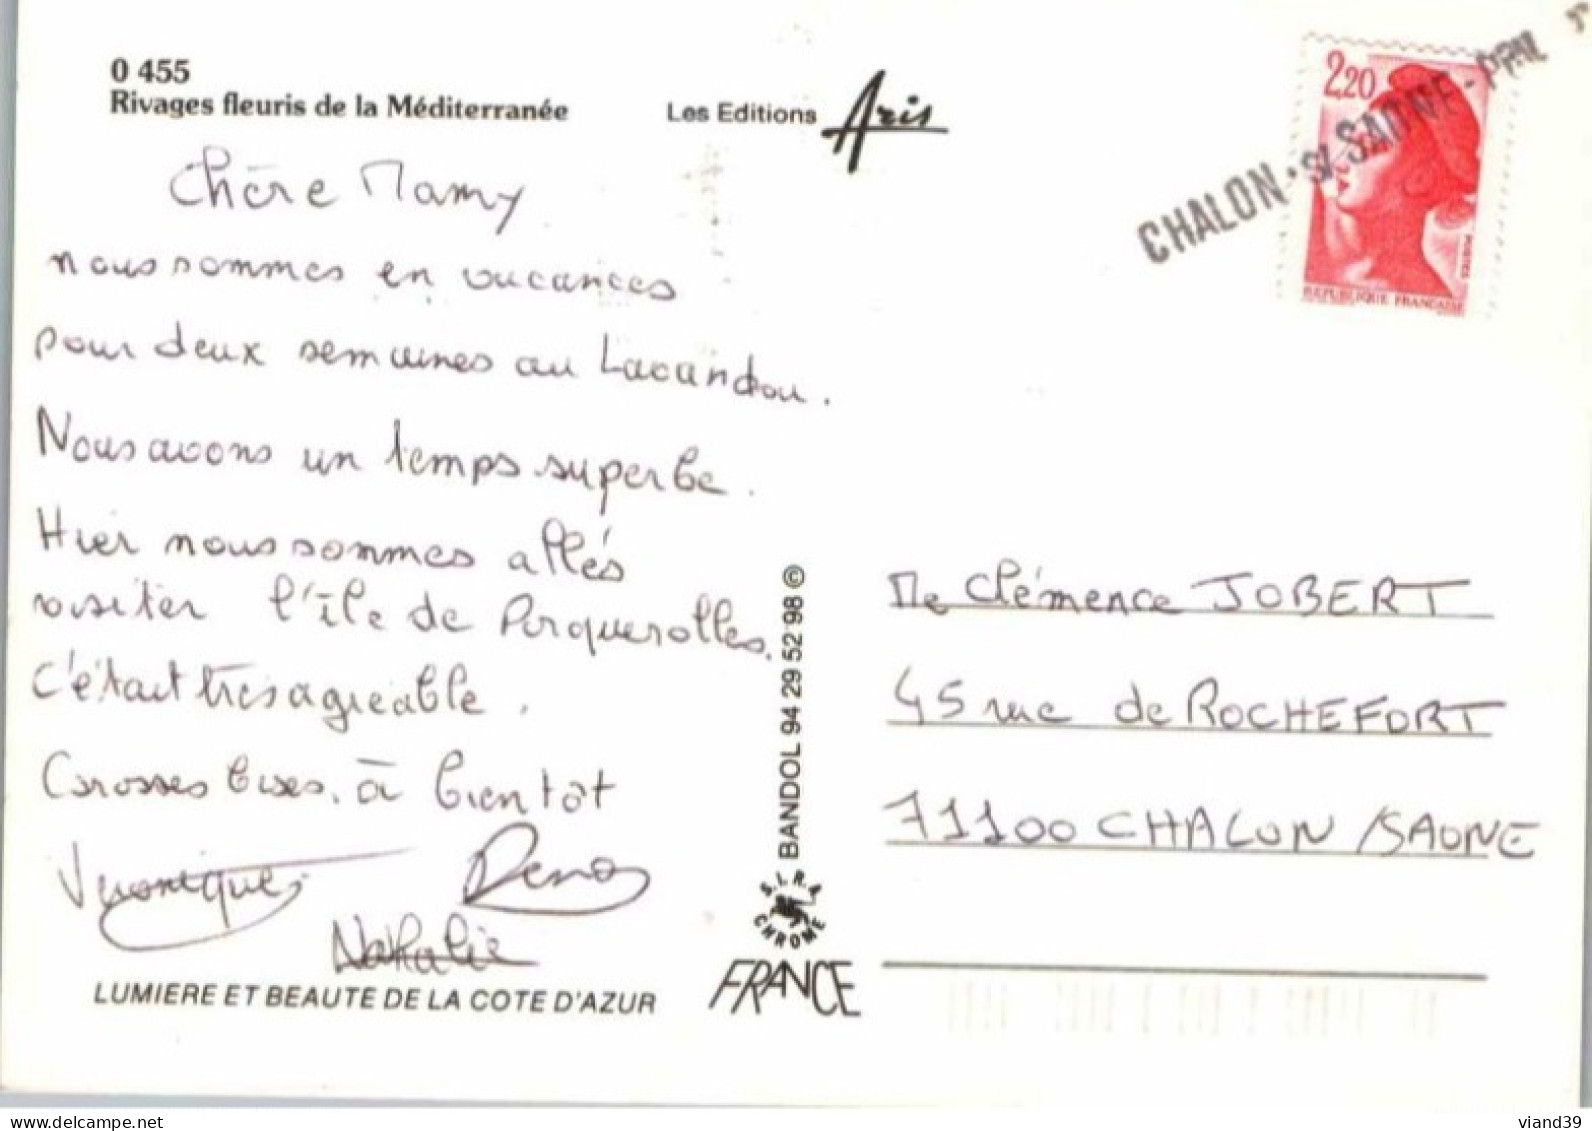 0 455
Rivages fleuris de la Méditerranée
Les Editions Aris
2,20
POSTES
REPUBLIQUE FRANCAISE
CHALON · S/ SAONE · PPAL
Chère Mamy
nous sommes en vacances
pour deux semaines au Lavandou.
Nous avons un temps superbe.
Hier nous sommes allés
visiter l'île de Porquerolles.
c'était très agréable.
Grosses bises. à bientôt
Véronique
Nathalie
LUMIERE ET BEAUTE DE LA COTE D'AZUR
BANDOL 94 29 52 98 ©
S.I.R.A
CHROME
FRANCE
Me Clémence JOBERT
45 rue de ROCHEFORT
71100 CHALON /SAONE
delcampe.net
viand39